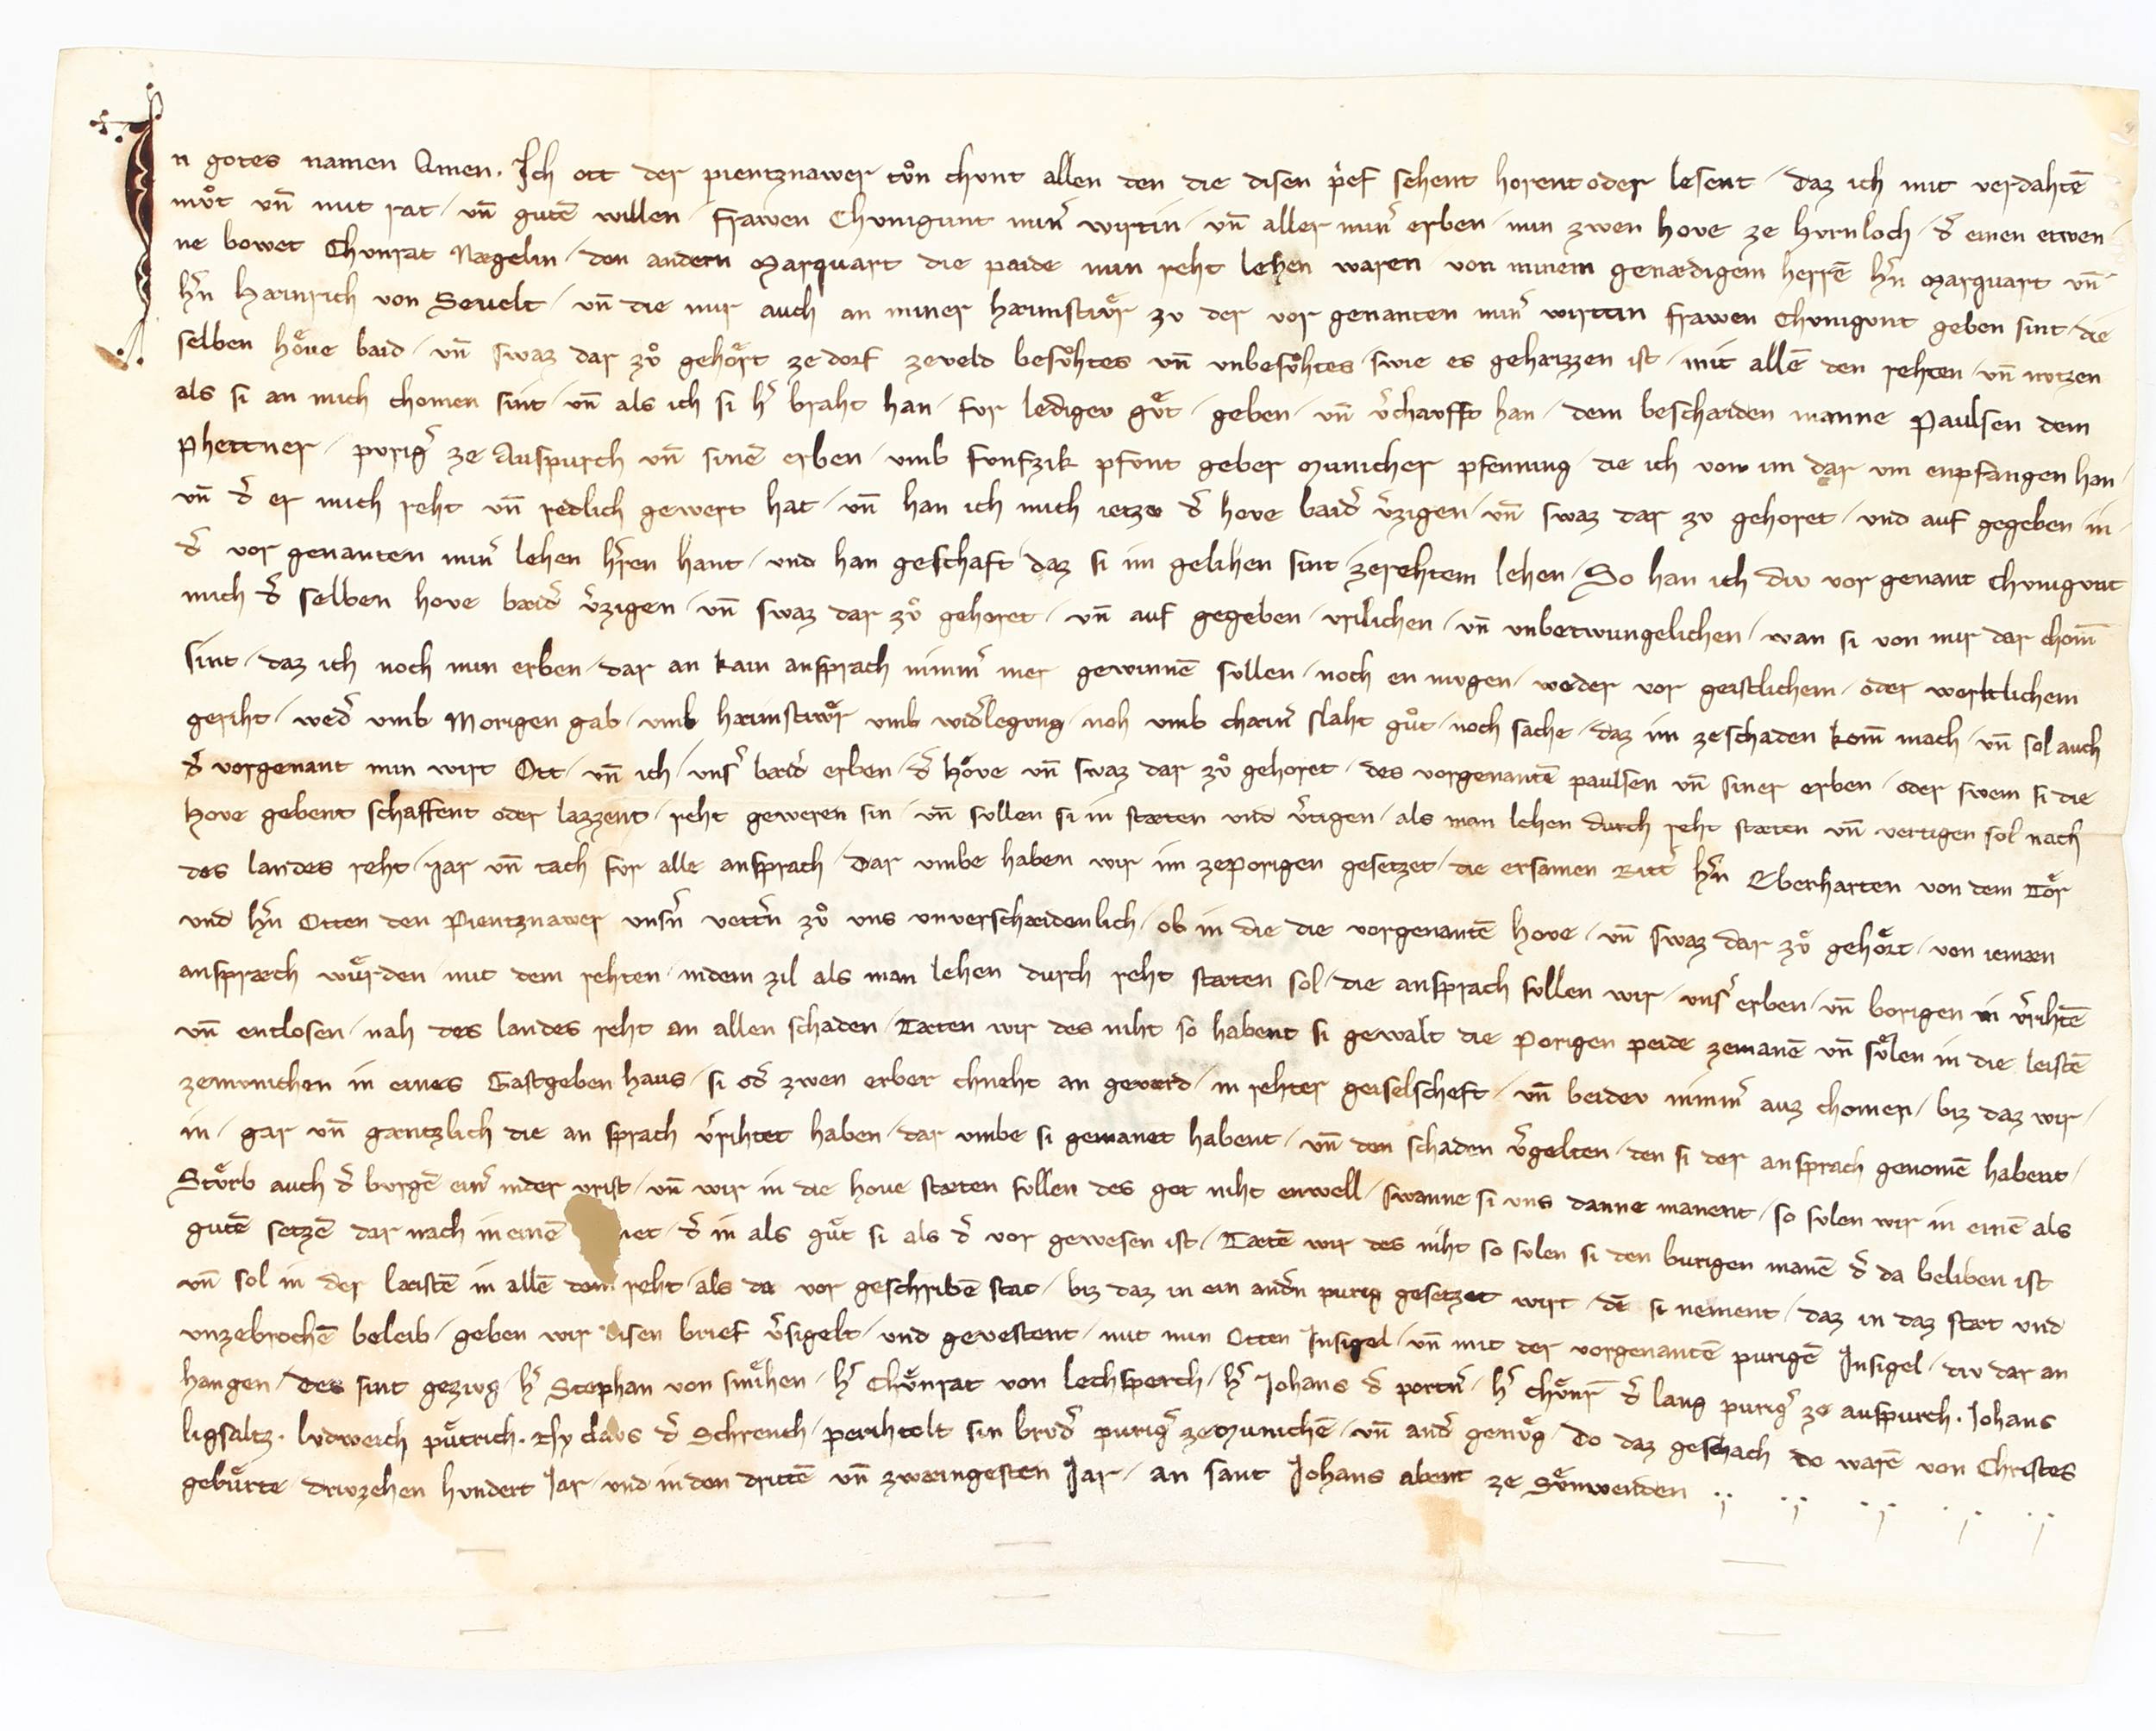 In gotes namen Amen. Ich ott der pientznawer tuͦn chunt allen den die disen p̃ief sehent horent oder lesent / daz ich mit verdahtē
muͦt vn̄ mit rat / vn̄ gutē willen / frawen Chvnigunt min̄ wirtin / vn̄ aller min̄ erben / min zwen hove ze hvrnloch / d̄ einen etwen /
ne bowet Chvnrat Nægelin / den andern Marquart die paide min reht lehen waren / von minem genædigem herrē h̄n Marquart vn̄
h̄n Hæinrich von Sevelt / vn̄ die mir auch an miner hæimstivͤr zv der vor genanten min̄ wirtin frawen Chvnigvnt geben sint / die
selben hoͤve baid / vn̄ swaz dar zuͦ gehoͤrt ze dorf zeveld besuͦhtes vn̄ vnbesuͦhtes / swie es gehæizzen ist / mit allē den rehten / vn̄ nvtzen
als si an mich chomen sint / vn̄ als ich si h̄ braht han / fvr ledigev guͤt / geben / vn̄ v̄chavfft han / dem beschæiden manne Paulsen dem
Phettner / puriḡ ze Auspurch vn̄ sinē erben / vmb funfzik pfvnt geber Municher pfenning / die ich von im dar vm enpfangen han /
vn̄ d̄ er mich reht vn̄ redlich gewert hat / vn̄ han ich mich ietzv d̄ hove baid̄ v̄zigen / vn̄ swaz dar zv gehoret / vnd auf gegeben in /
d̄ vor genanten min̄ lehen h̄ren hant / vnd han geschaft daz si im gelihen sint / zerehtem lehen / So han ich div vor genant Chvnigvnt
mich d̄ selben hove bæid̄ v̄zigen / vn̄ swaz dar zuͦ gehoret / vn̄ auf gegeben / vrilichen / vn̄ vnbetwungelichen / wan si von mir dar chom̄
sint / daz ich noch min erben / dar an kain ansprach nimm̄ mer gewinnē sullen / noch en mvgen / weder vor geistlichem / oder werltlichem
geriht / wed̄ vmb Morigen gab / vmb hæimstivͤr vmb wid̄legvng / noh vmb chæin̄ slaht guͦt / noch sache / daz im ze schaden kom̄ mach / vn̄ sol auch
d̄ vorgenant min wirt Ott / vn̄ ich / vns̄ bæid̄ erben / d̄ hoͤve vn̄ swaz dar zuͦ gehoret / des vorgenantē paulsen vn̄ siner erben / oder swem si die
hove gebent schaffent oder lazzent / reht geweren sin / vn̄ sullen si in stæten vnd v̄tigen / als man lehen durch reht stæten vn̄ vertigen sol nach
des landes reht / iar vn̄ tach fvr alle ansprach / Dar vmbe haben wir im zeporigen gesetzet / die ersamen Ritt̄ h̄n Eberharten von dem Toͤr
vnd h̄n Otten den Pientznawer vns̄n vett̄n zuͦ vns vnverschæidenlich / ob in die die vorgenantē hove / vn̄ swaz dar zuͦ gehoͤrt / von iemæn
anspræch wuͤrden / mit dem rehten / indem zil als man lehen durch reht stæten sol / die ansprach sullen wir / vns̄ erben / vn̄ borigen in v̄rihtē
vn̄ entlosen / nah des landes reht an allen schaden / Tæten wir des niht so habent si gewalt die Porigen peide zemanē vn̄ suͤlen in die leistē
zemvnichen in eines Gastgeben haus / si od̄ zwen erber chneht an geværd / in rehter geiselscheft / vn̄ beidev nimm̄ auz chomen / biz daz wir /
in / gar vn̄ gæntzlich die an sprach v̄rihtet haben / dar vmbe si gemanet habent / vn̄ den schaden v̄gelten / den si der ansprach genomē habent /
Stuͤrb auch d̄ burgē ein̄ inder vrist / vn̄ wir in die hove stæten sullen des got niht enwell / swanne si vns danne manent / so sulen wir in einē als
gutē setzē dar nach in einē net / d̄ in als guͤt si als d̄ vor gewesen ist / Tætē wir des niht so sulen si den burigen manē d̄ da beliben ist
vn̄ sol in der læistē in allē dem reht / als da vor geschribē stat / biz daz in ein and̄n purig gesetzet wirt / dē si nement / daz in daz stæt vnd
vnzebrochē beleib / geben wir disen brief v̄sigelt / vnd gevestent / mit min Otten Insigel / vn̄ mit der vorgenantē purigē Insigel / div dar an
hangen / des sint gezivg / h̄ Stephan von smihen / h̄ Chuͤnrat von Lechsperch / h̄ Johans d̄ portn̄ / h̄ chuͤnr̄ d̄ lang puriḡ ze auspurch . Johans
ligsaltz . Lvdweich puͤtrich . d̄ Schrench / perihtolt sin brvd̄ puriḡ zeMunichē / vn̄ and̄ genuͤg / do daz geschach do warē von Christes
gebuͤrte / drivzehen hvndert Jar / vnd in den drittē vn̄ zwæingesten Jar / an sant Johans abent ze Suͤnwenden